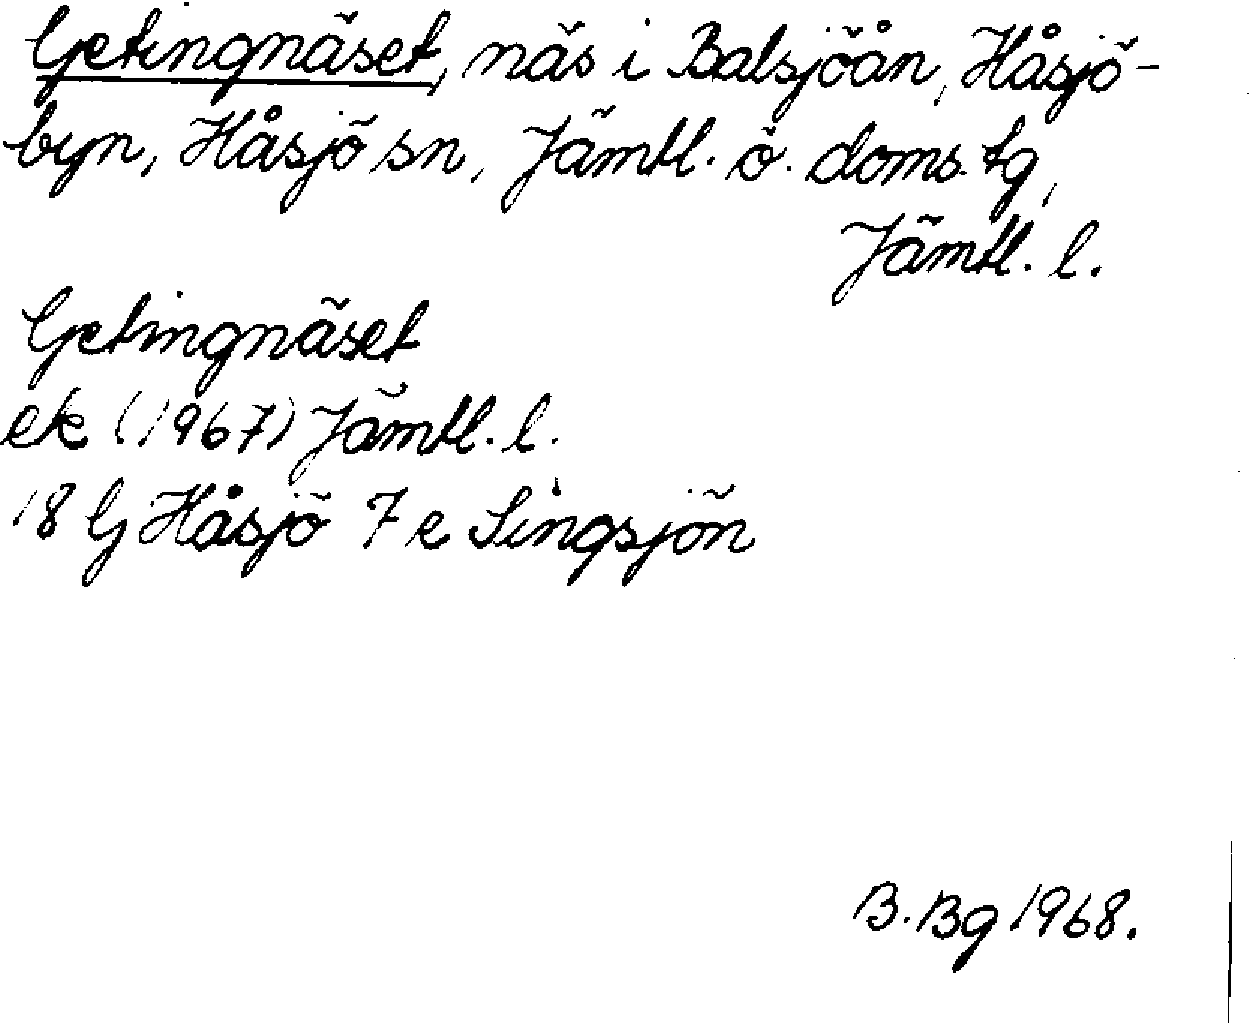 Getingnäset, näs i Balsjöån, Håsjö-
byn, Håsjö sn, Jämtl. ö. doms. tg,
Jämtl. l.
Getingnäset
ek (1967) Jämtl. l.
18 G Håsjö 7 e Singsjön
B. Bg 1968.